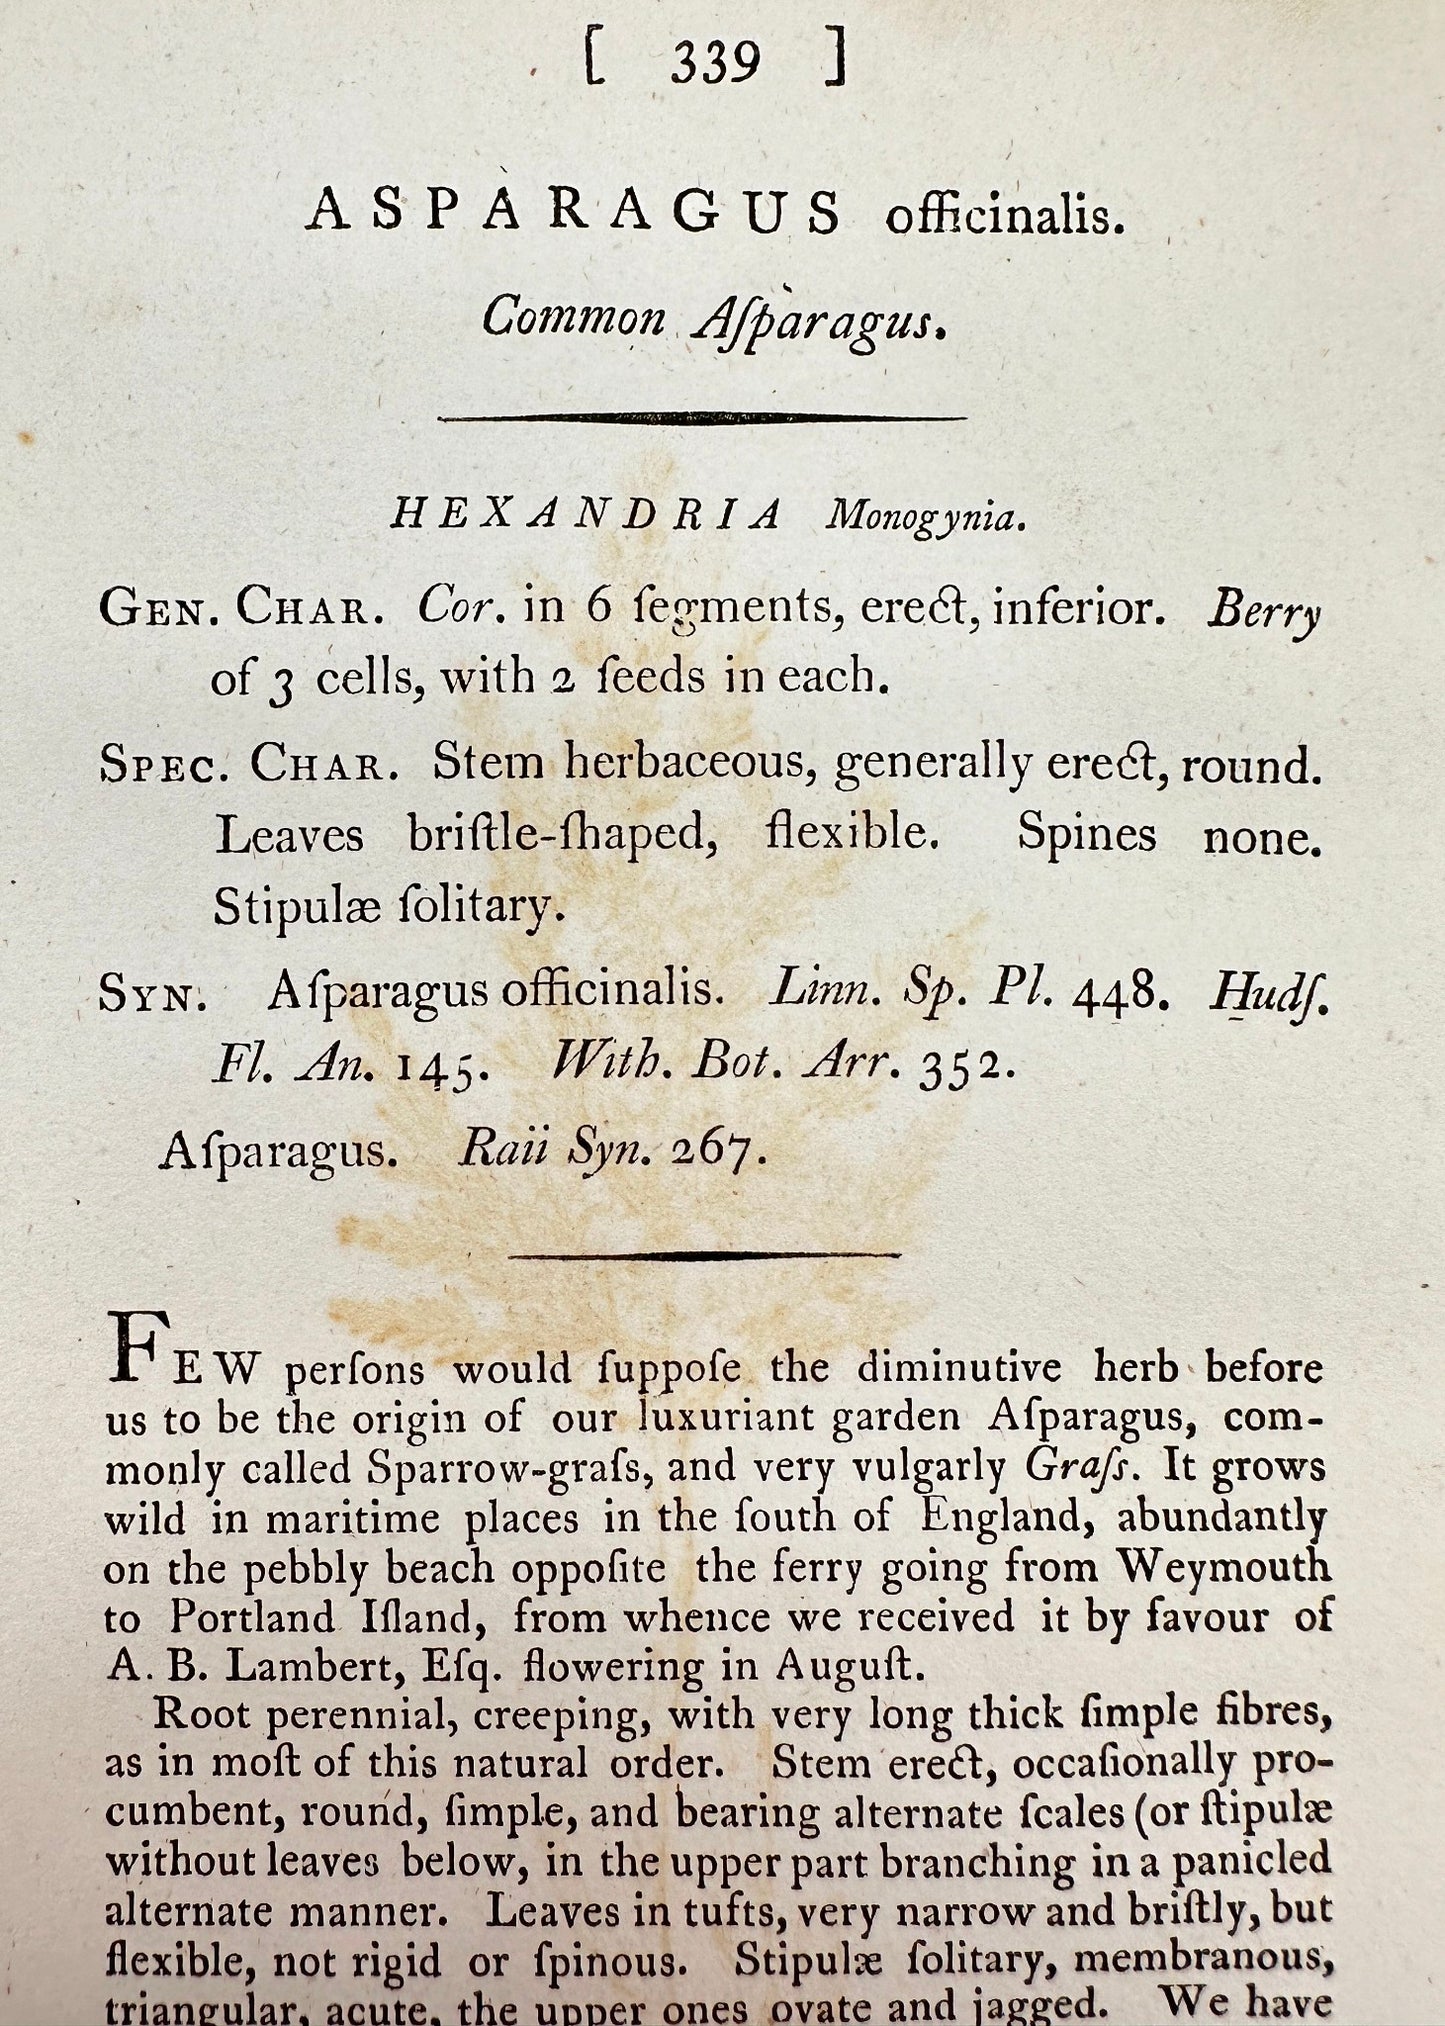 [ 339 ]
ASPARAGUS officinalis.
Common Aſparagus.
HEXANDRIA Monogynia.
GEN. CHAR. Cor. in 6 ſegments, erect, inferior. Berry
of 3 cells, with 2 ſeeds in each.
SPEC. CHAR. Stem herbaceous, generally erect, round.
Leaves briſtle-ſhaped, flexible. Spines none.
Stipulæ ſolitary.
SYN. Aſparagus officinalis. Linn. Sp. Pl. 448. Hudſ.
Fl. An. 145. With. Bot. Arr. 352.
Aſparagus. Raii Syn. 267.
FEW perſons would ſuppoſe the diminutive herb before
us to be the origin of our luxuriant garden Aſparagus, com-
monly called Sparrow-graſs, and very vulgarly Graſs. It grows
wild in maritime places in the ſouth of England, abundantly
on the pebbly beach oppoſite the ferry going from Weymouth
to Portland Iſland, from whence we received it by favour of
A. B. Lambert, Eſq. flowering in Auguſt.
Root perennial, creeping, with very long thick ſimple fibres,
as in moſt of this natural order. Stem erect, occaſionally pro-
cumbent, round, ſimple, and bearing alternate ſcales (or ſtipulæ
without leaves below, in the upper part branching in a panicled
alternate manner. Leaves in tufts, very narrow and briſtly, but
flexible, not rigid or ſpinous. Stipulæ ſolitary, membranous,
triangular, acute, the upper ones ovate and jagged. We have